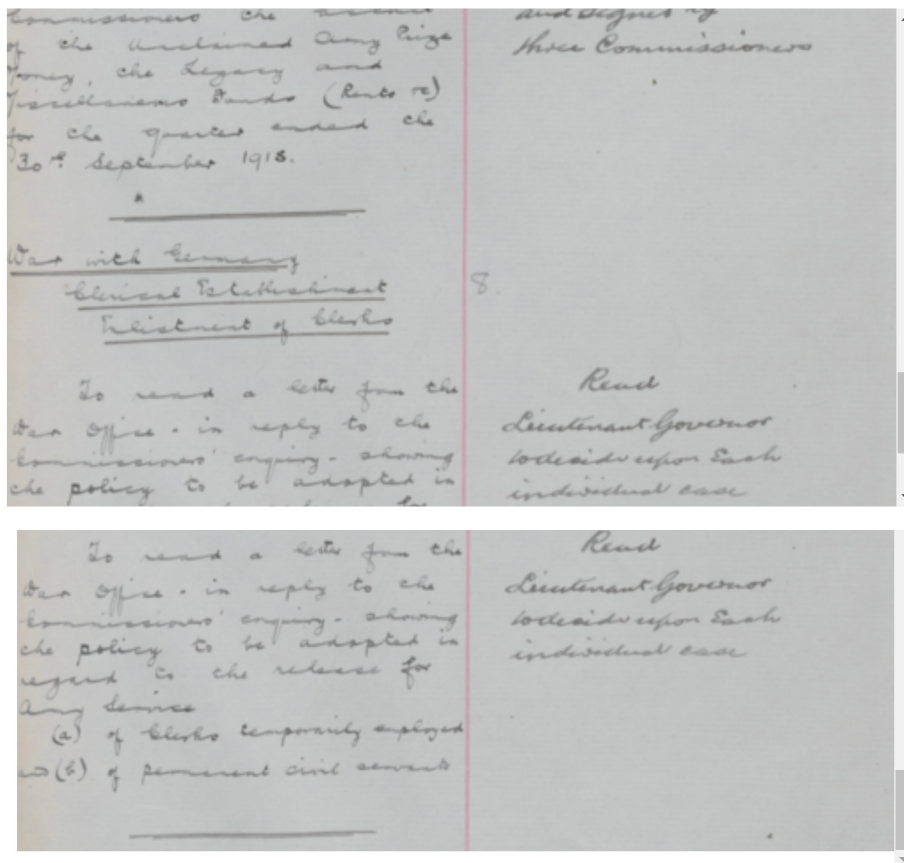 Commissioners the
of the Unclaimed Army Prize
Money, the Legacy and
Miscellaneous Funds (Rents &c)
for the quarter ended the
30th September 1915.
War with Germany
Clerical Establishment
Enlistment of Clerks
To read a letter from the
War Office - in reply to the
Commissioners' enquiry - showing
the policy to be adopted in
and signed by
three Commissioners
8.
Read
Lieutenant Governor
to decide upon Each
individual case
To read a letter from the
War Office - in reply to the
Commissioners' enquiry - showing
the policy to be adopted in
regard to the release for
Army Service
(a) of Clerks temporarily employed
and (b) of permanent civil servants
Read
Lieutenant Governor
to decide upon Each
individual case